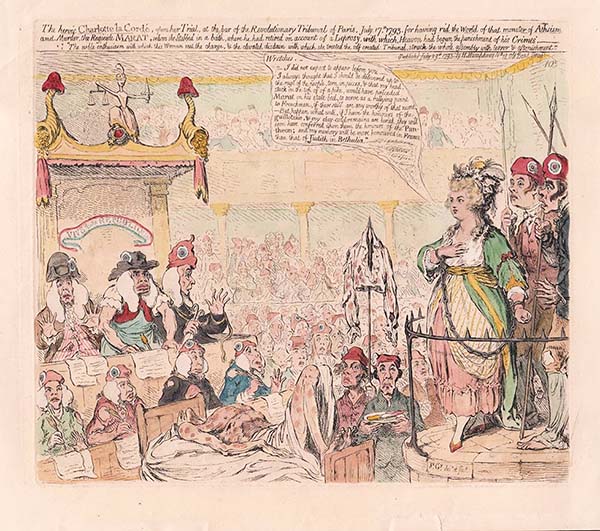 The heroic Charlotte la Cordé, upon her Trial, at the bar of the Revolutionary Tribunal of Paris, July 17th 1793, for having rid the World of that monster of Atheism
and Murder, the Regicide MARAT, whom she Stabbed in a bath, where he had retired on account of a Leprosy, with which, Heaven had begun the punishment of his Crimes.
"The noble enthusiasm with which this Woman met the charge, & the elevated disdain with which she treated the self created Tribunal, struck the whole assembly with terror & astonishment."
Wretches,
I did not expect to appear before you
I always thought that I should be delivered up to
the rage of the people, torn in pieces, & that my head,
stuck on the top of a pike, would have preceded
Marat on his state bed, to serve as a rallying point
to Frenchmen, if there still are any worthy of that name.
But, happen what will, if I have the honours of the
guillotine, & my clay cold remains are buried, they will
soon have conferred upon them the honours of the Pan-
theon; and my memory will be more honoured in France
than that of Judith in Bethulia.